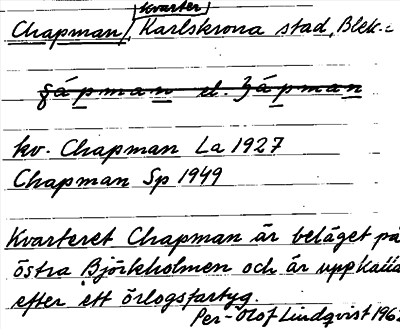 kvarter
Chapman, Karlskrona stad, Blek.
kv. Chapman La 1927
Chapman Sp 1949
Kvarteret Chapman är beläget på
östra Björkholmen och är uppkallat
efter ett örlogsfartyg.
Per-Olof Lindqvist